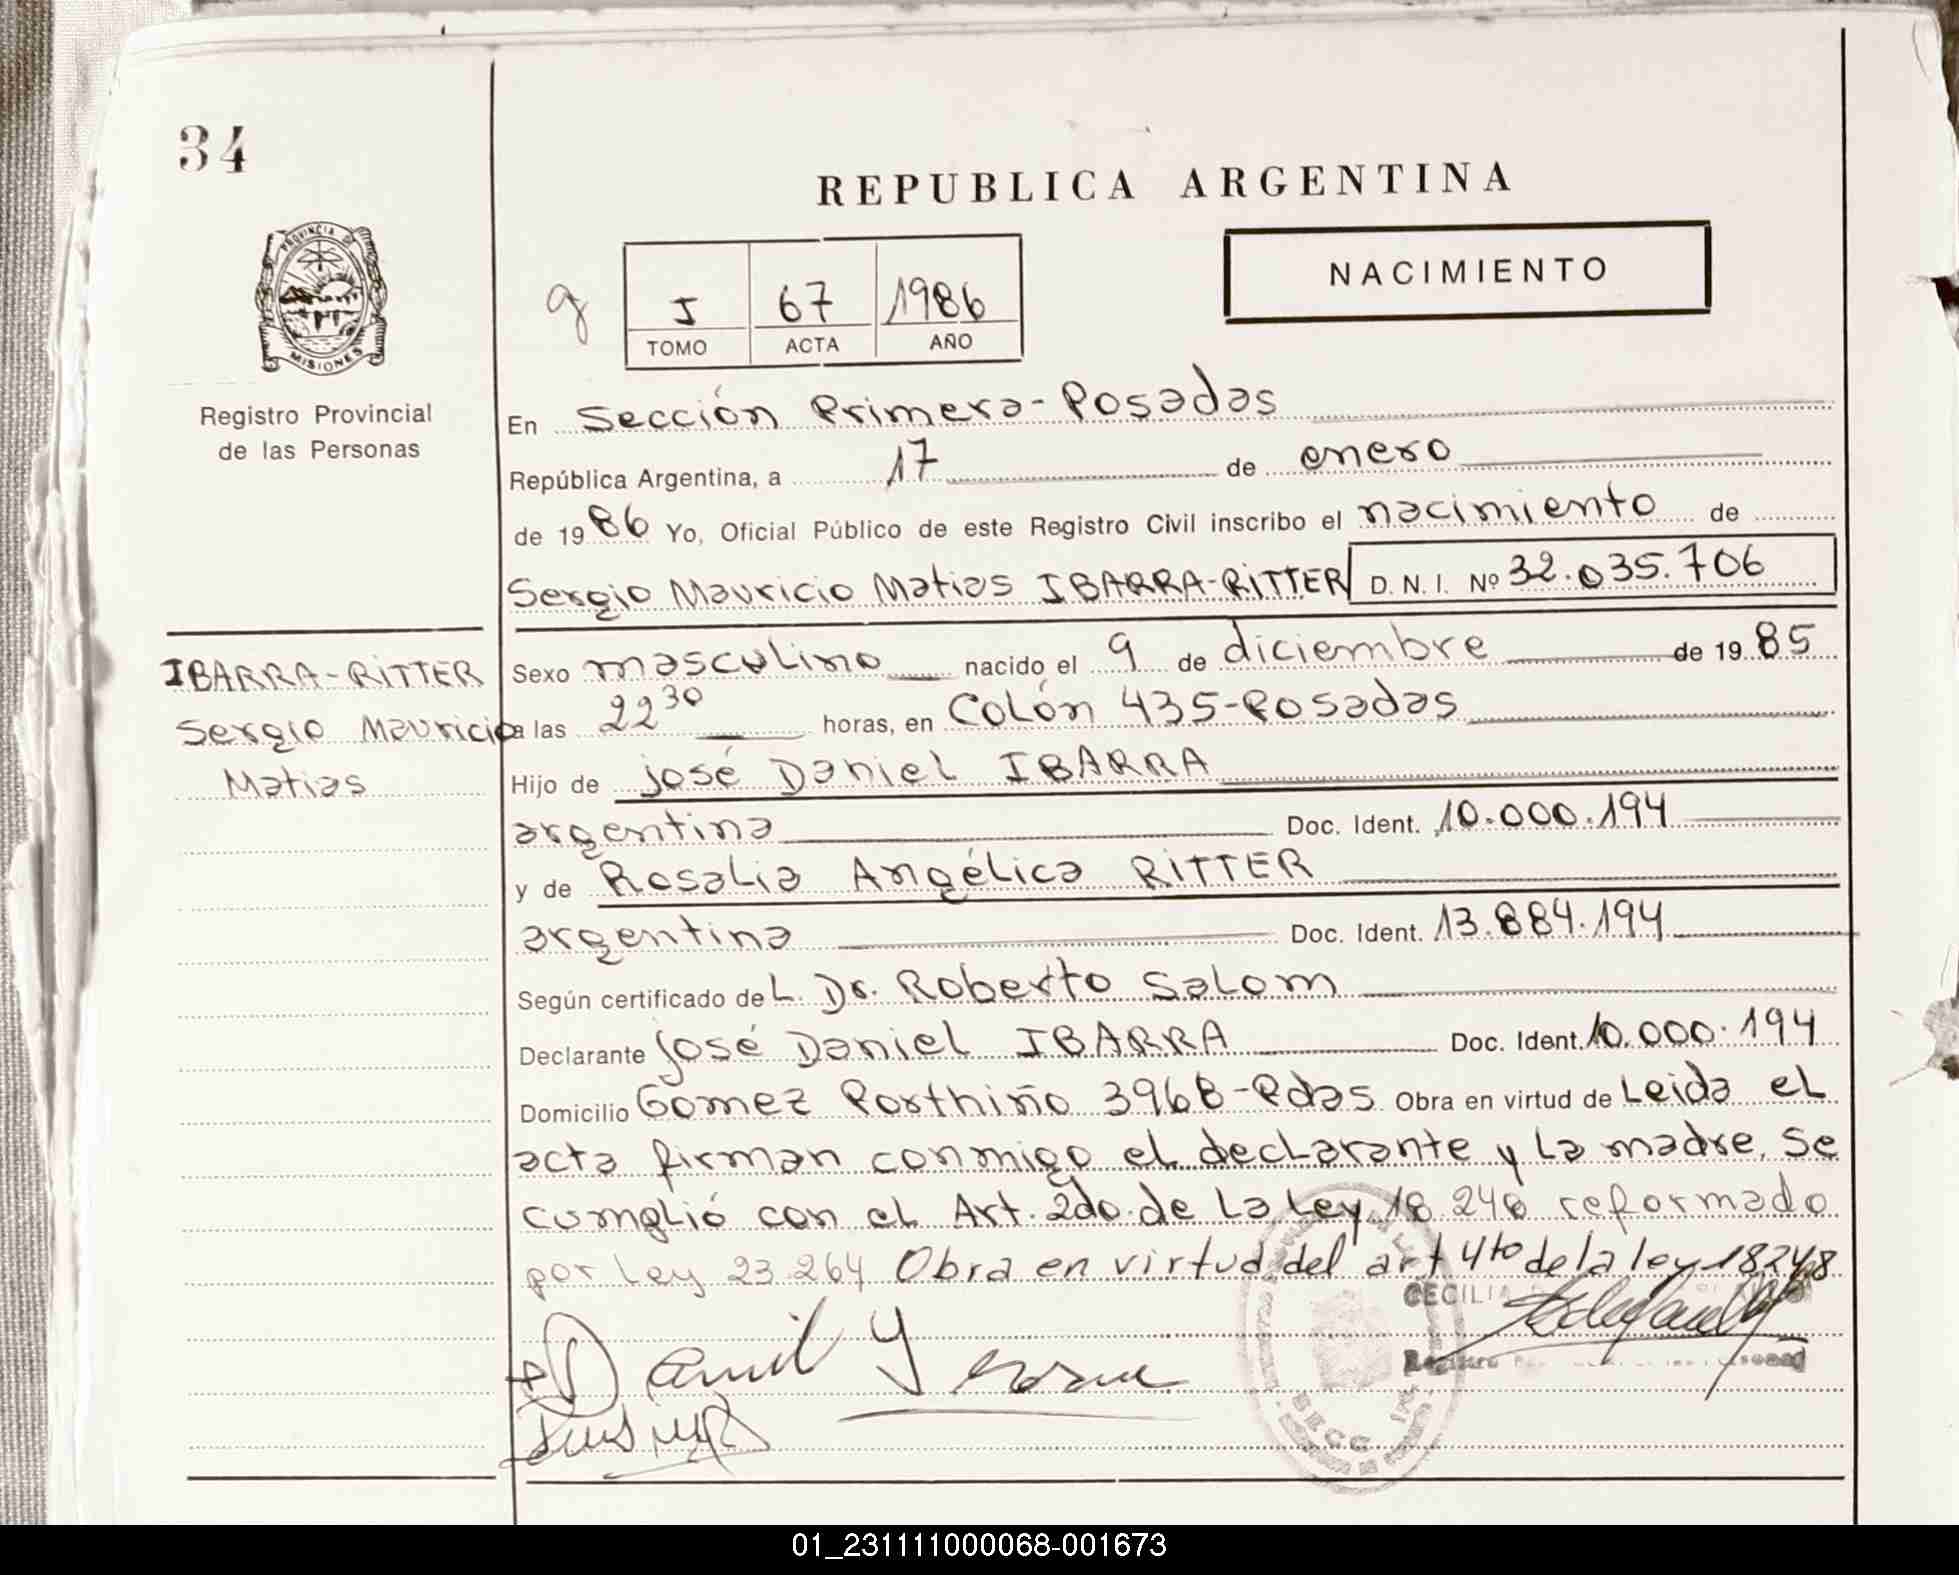 34
REPUBLICA ARGENTINA
NACIMIENTO
g
I 67 1986
TOMO ACTA AÑO
PROVINCIA DE
MISIONES
Registro Provincial
de las Personas
En Sección Primera-Posadas
República Argentina, a 17 de enero
de 1986 Yo, Oficial Público de este Registro Civil inscribo el nacimiento de
Sergio Mauricio Matias IBARRA-RITTER D. N. I. Nº 32.035.706
IBARRA-RITTER
Sergio Mauricio
Matias
Sexo masculino nacido el 9 de diciembre de 1985
a las 22 30 horas, en Colón 435-Posadas
Hijo de José Daniel IBARRA
argentina Doc. Ident. 10.000.194
y de Rosalia Angélica RITTER
argentina Doc. Ident. 13.884.194
Según certificado del. Dr. Roberto Salom
Declarante José Daniel IBARRA Doc. Ident. 10.000.194
Domicilio Gomez Porthiño 3968-Pdas Obra en virtud de Leida el
acta firman conmigo el declarante y la madre. Se
cumplió con el Art. 2do. de la Ley 18.248 reformado
por Ley 23.264 Obra en virtud del art 4to de la ley 18248
CECILIA
Registro
SECC
01_231111000068-001673